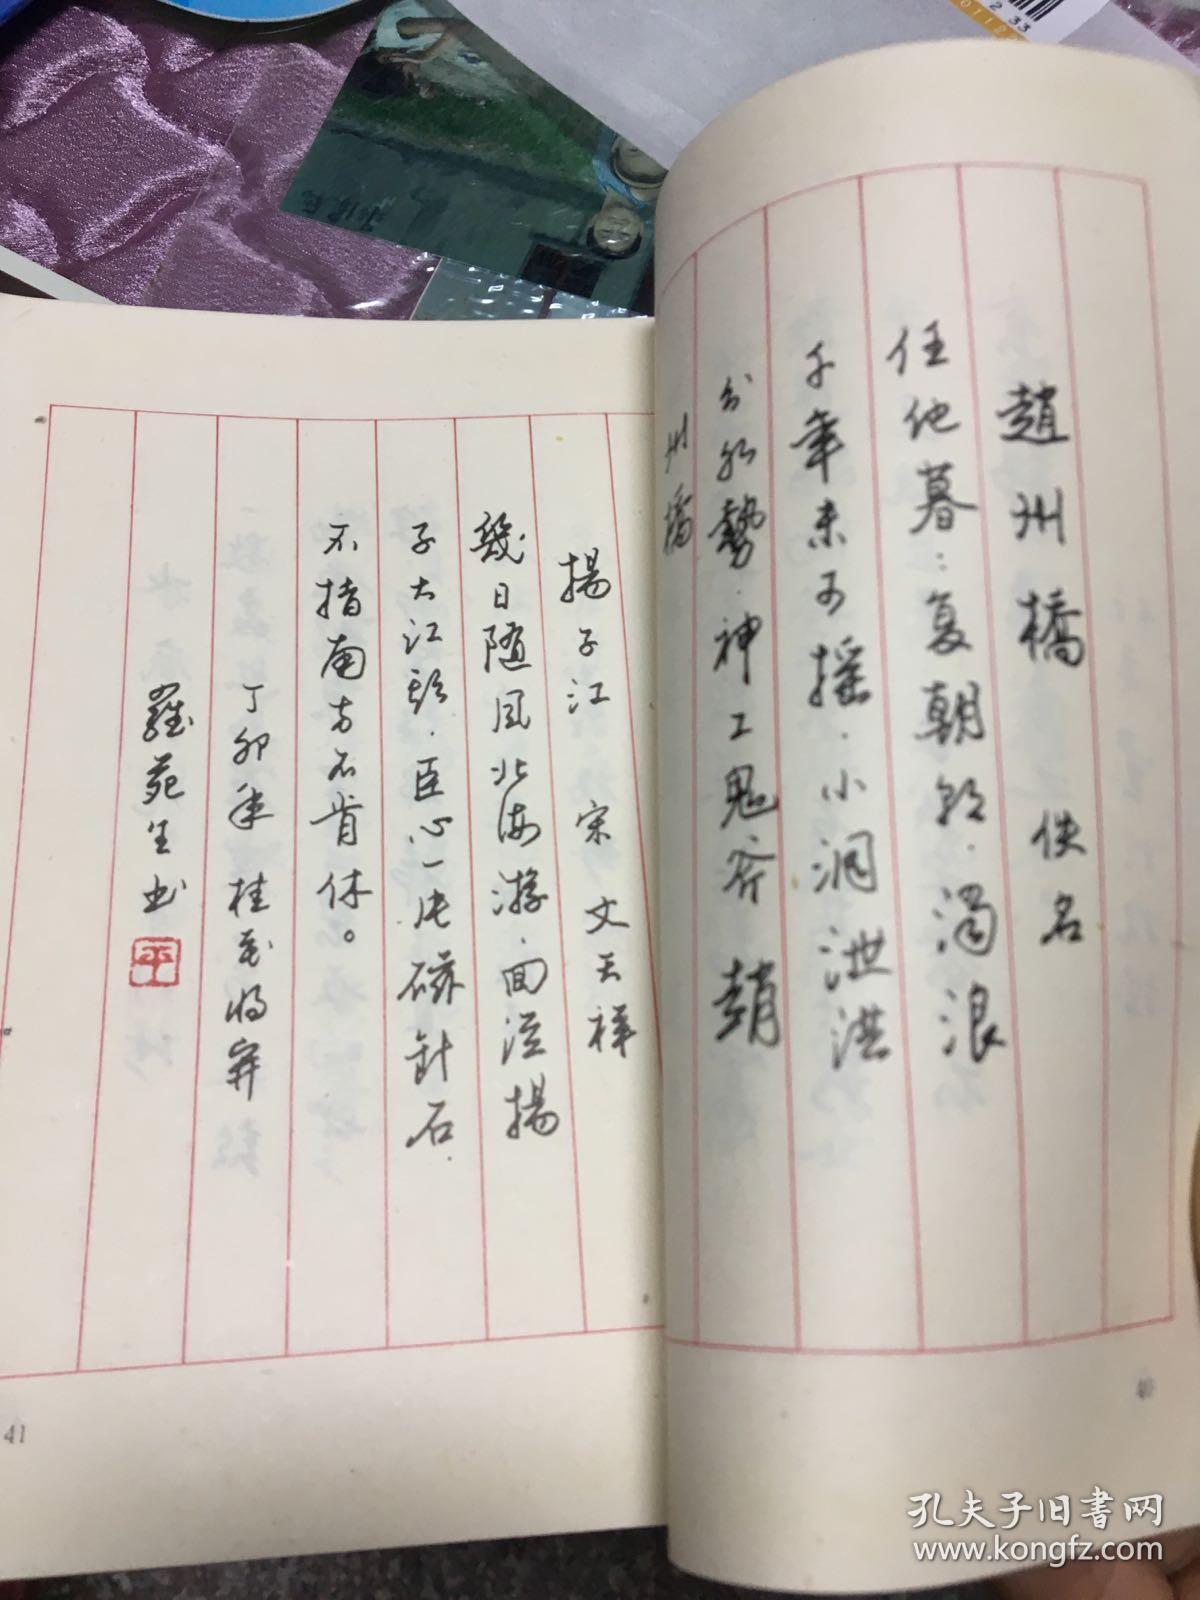 趙州橋 佚名
任他暮:复朝朝.濁浪
千年未可摇.小洞泄洪
分勢.神工鬼斧趙
州橋
40
揚子江 宋 文天祥
幾日随風北海游.回從揚
子大江頭.臣心一片磁針石.
不指南方不肯休。
丁卯年桂花将开
羅苑生书
平
41
孔夫子旧书网
www.kongfz.com